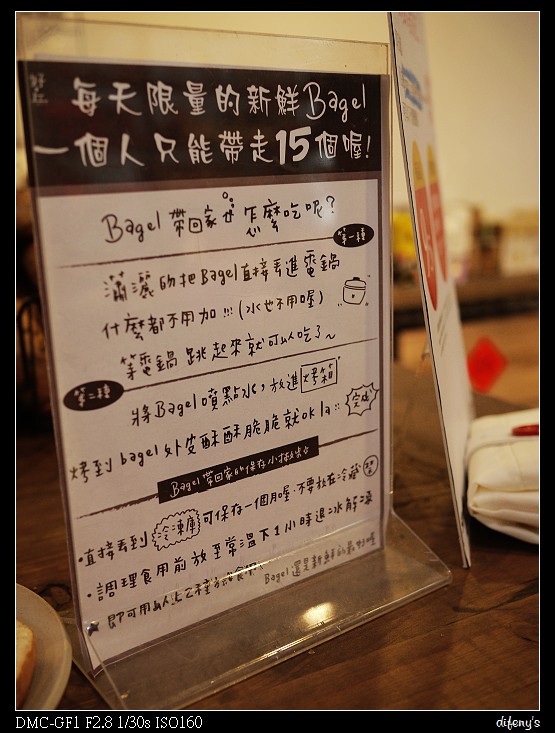 每天限量的新鮮Bagel
一個人只能帶走15個喔!
Bagel 帶回家也怎麼吃呢?
第一種
瀟灑的把Bagel直接丟進電鍋
什麼都不用加!!!(水也不用喔)
等電鍋跳起來就可以吃了~
第二種
將Bagel噴點水,放進烤箱
完成
烤到bagel外皮酥酥脆脆就ok la::
Bagel帶回家的保存小
•直接丟到冷凍庫可保存一個月喔.不要放在冷藏
•調理食用前放至常溫下1小時退冰解凍
即可用以上2種方式食
Bagel還是新鮮的最好喔
DMC-GF1 F2.8 1/30s ISO160
difeny's